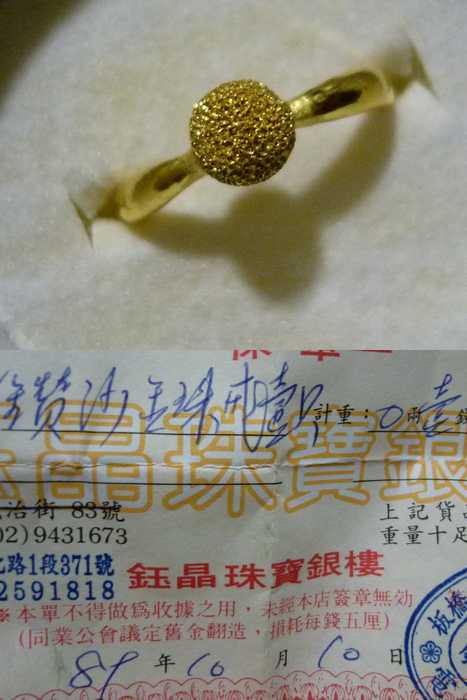 保單
計重: 0 兩 壹 錢
晶珠寶銀
治街 83號
02)9431673
上記貨品
重量十足
北路1段371號
2591818
鈺晶珠寶銀樓
※本單不得做爲收據之用，未經本店簽章無効
(同業公會議定舊金翻造，損耗每錢五厘)
89 年 10 月 10 日
板橋